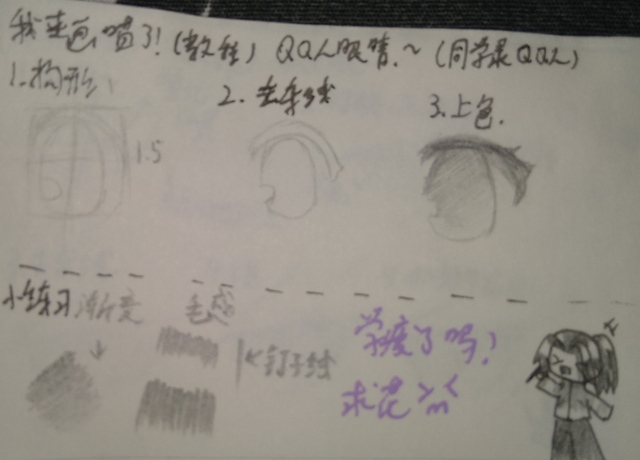 我在画喷了!(教程) QQ人眼睛.~(同学录QQ人)
1.构形
2.去杂线
3.上色.
1.5
小练习 渐变 毛感
钉子绘
学废了吗!
求花